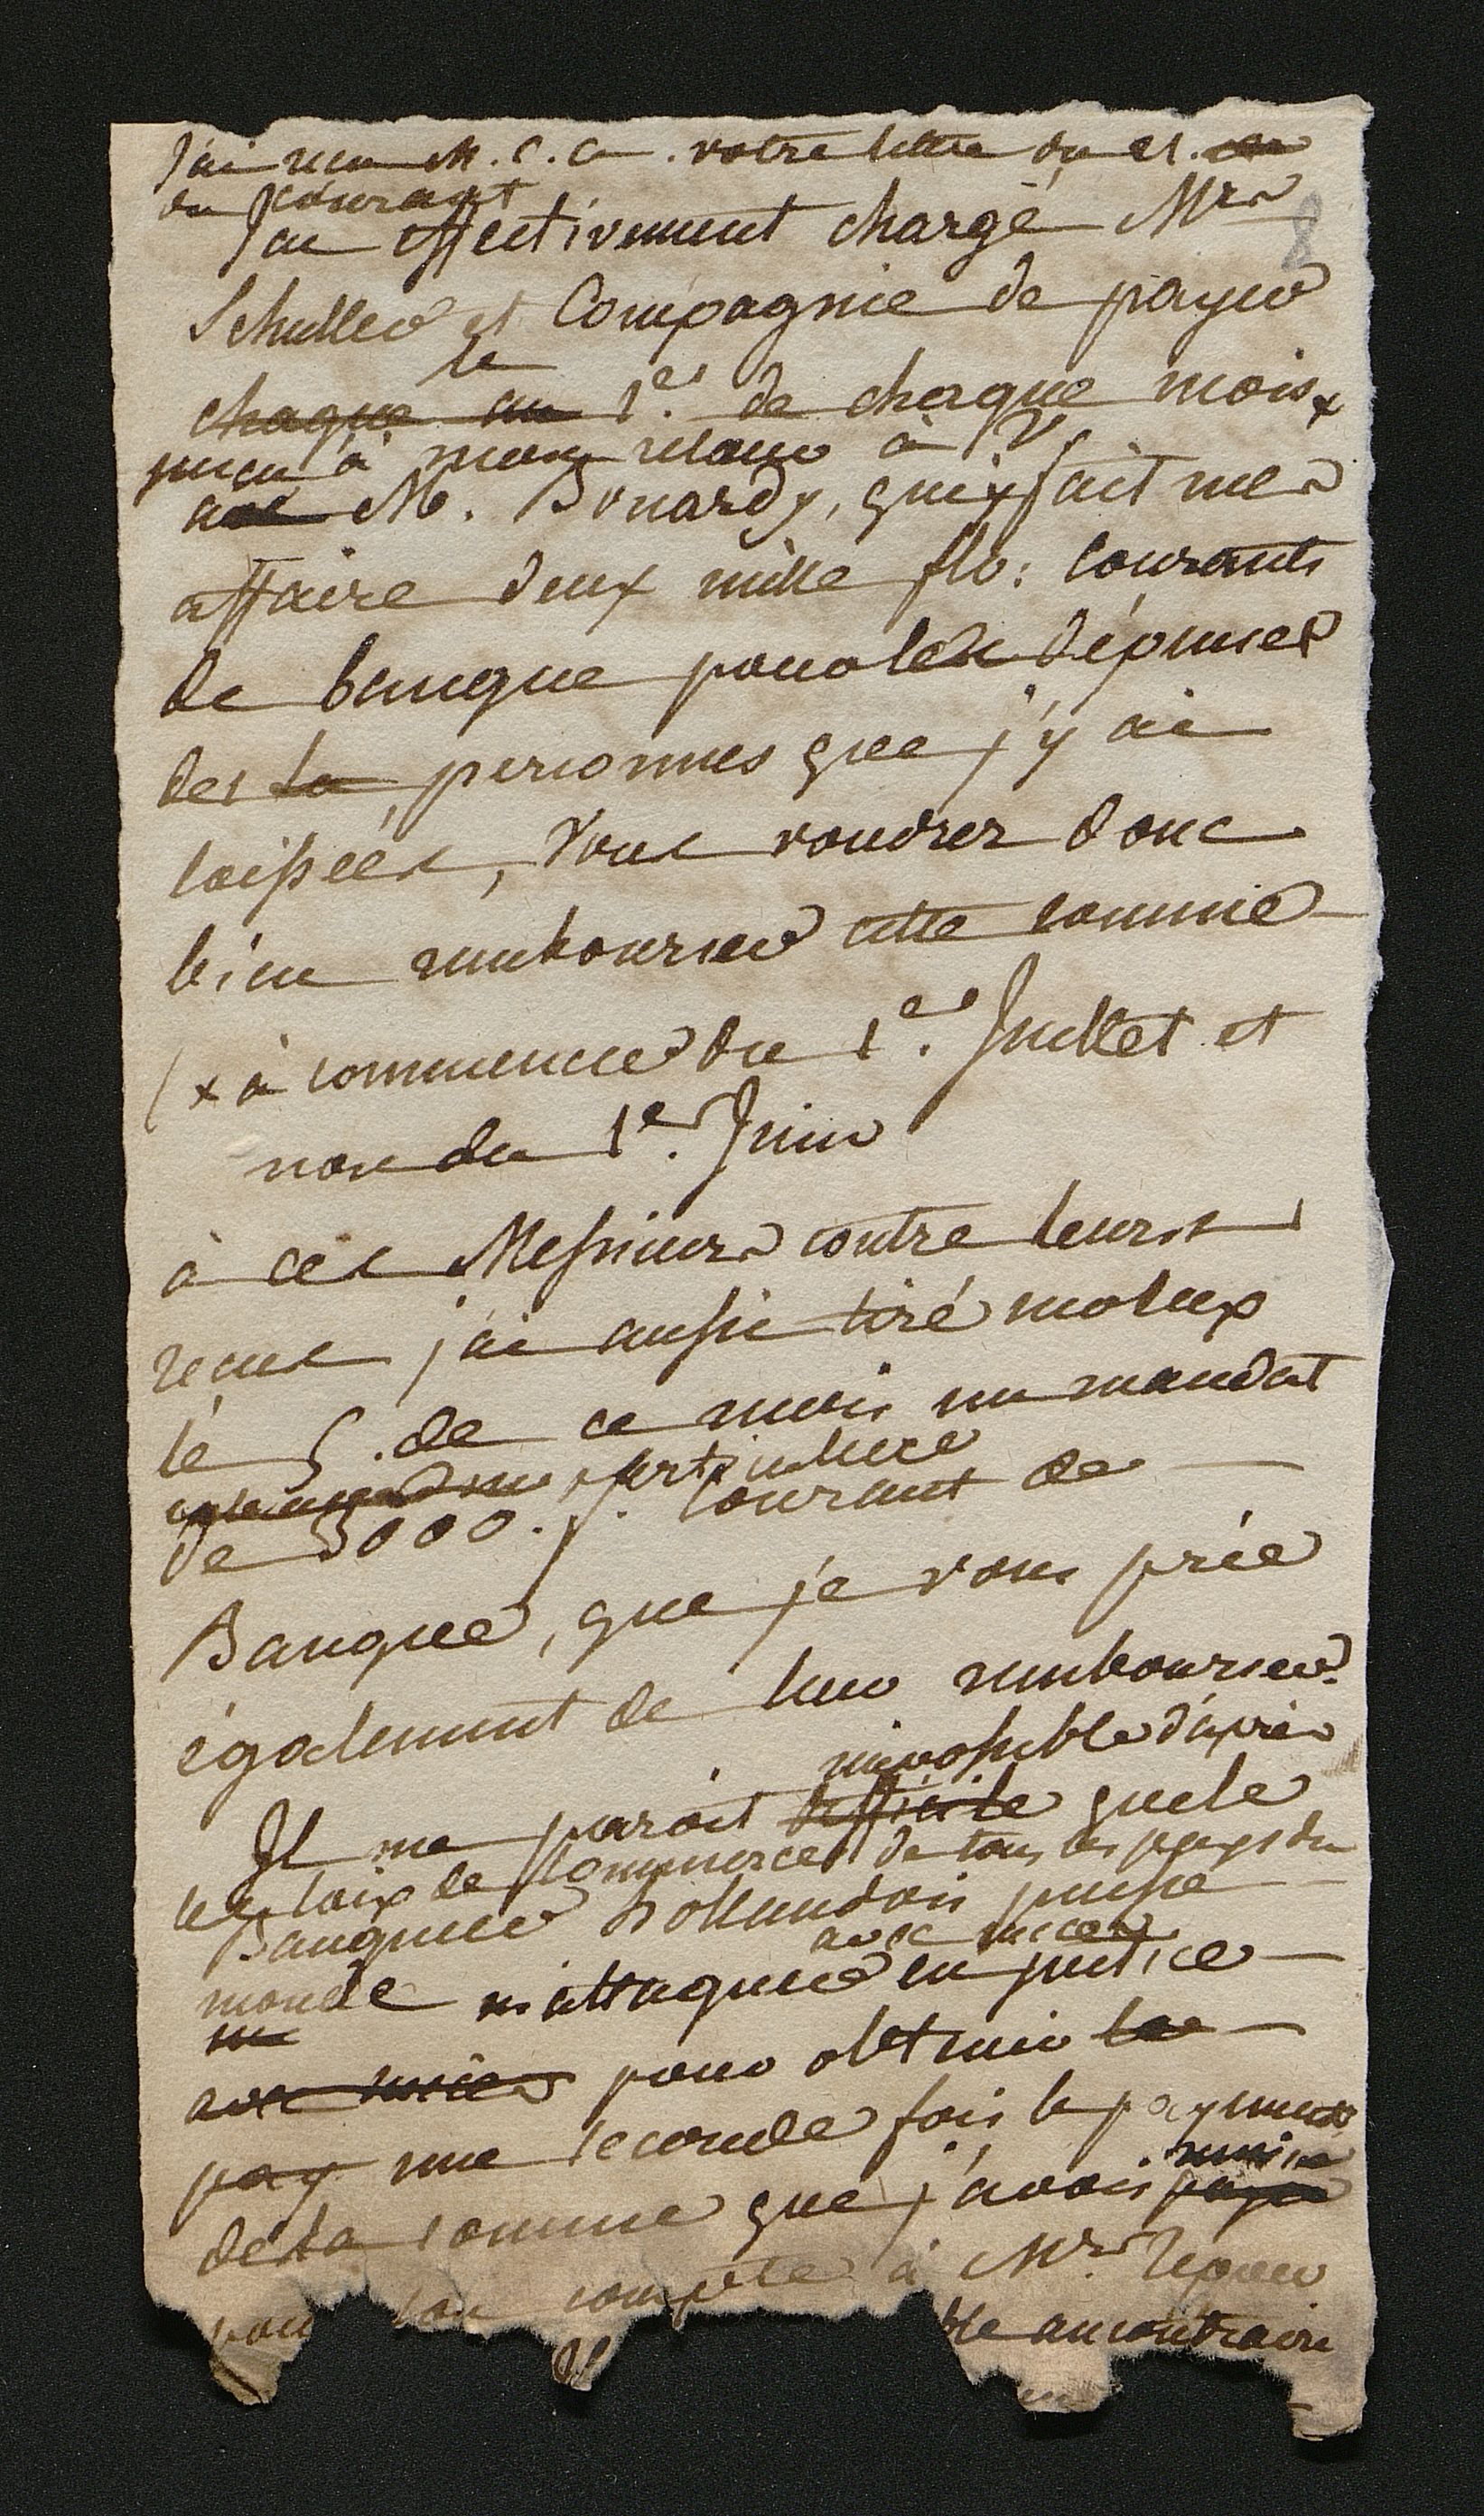 J'ai recu M. C. C. votre lettre du 21.
du courant
J'ai effectivement chargé Mrs
8
Schuller et Compagnie de payer
le
chaque au 1er. de chaque mois
jusqu'à mon retour à V
M. Bonardy, qui fait mes
affaire deux mille flo: courants
de banque pour les dépenses
des la personnes que j'y ai
laissées, Vous voudrez donc
bien rembourser cette somme
(x à commencer du 1er. Juillet et
non du 1er. Juin
à ces Messieurs contre leurs
recus j'ai aussi tiré sur eux
le 5. de ce mois un mandat
particulier
de 3000. f. courant de
Banque, que je vous prie
également de leur rembourser.
impossible d'après
Il me paroit difficile que le
les loix de commerce de tous les pays du
Banquier hollandois puisse
avec succes
monde m'attaquer en justice
avec succes pour obtenir le
pay une seconde fois le payement
remise
de la somme que j'avois payé
pour son compte à Mr.
Il ble au contraire